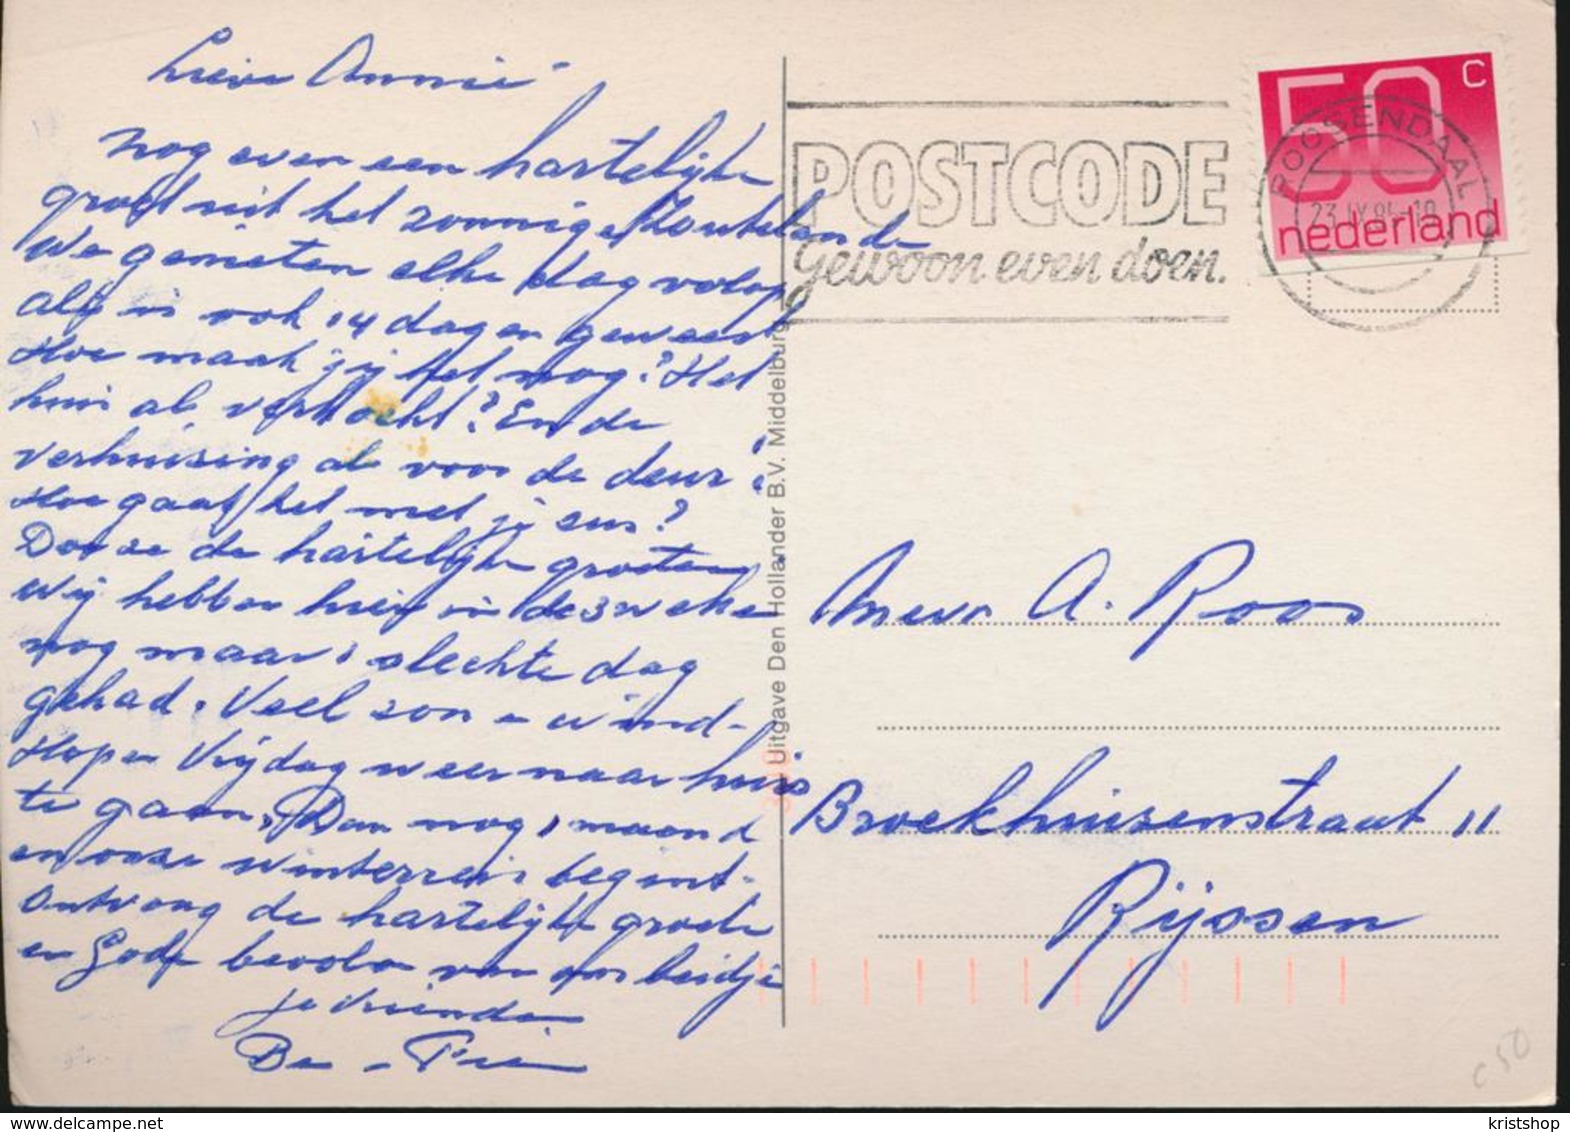 Lieve Annie
nog even een hartelijke
groet uit het zonnige Zoutelande
We genieten elke dag volop
als in ook 14 dagen geweest
Hoe maak jij het nog? Het
huis al verkocht? En de
verhuizing al voor de deur?
Hoe gaat het met je zus?
Doe ze de hartelijke groeten
Wij hebben hier in de 3 weke
nog maar 1 slechte dag
gehad. Veel zon en wind-
Hopen Vrijdag weer naar huis
te gaan. Dan nog 1 maand
en onze winterreis begint.
Ontvang de hartelijke groete
en Gods bevolen van ons beidje
je vrienden
POSTCODE
Gewoon even doen.
50 c
nederland
ROOSENDAAL
23 IX 85-10
Uitgave Den Hollander B.V. Middelburg
Mevr A. Roos
Broekhuizenstraat 11
Rijssen
c50
kristshop